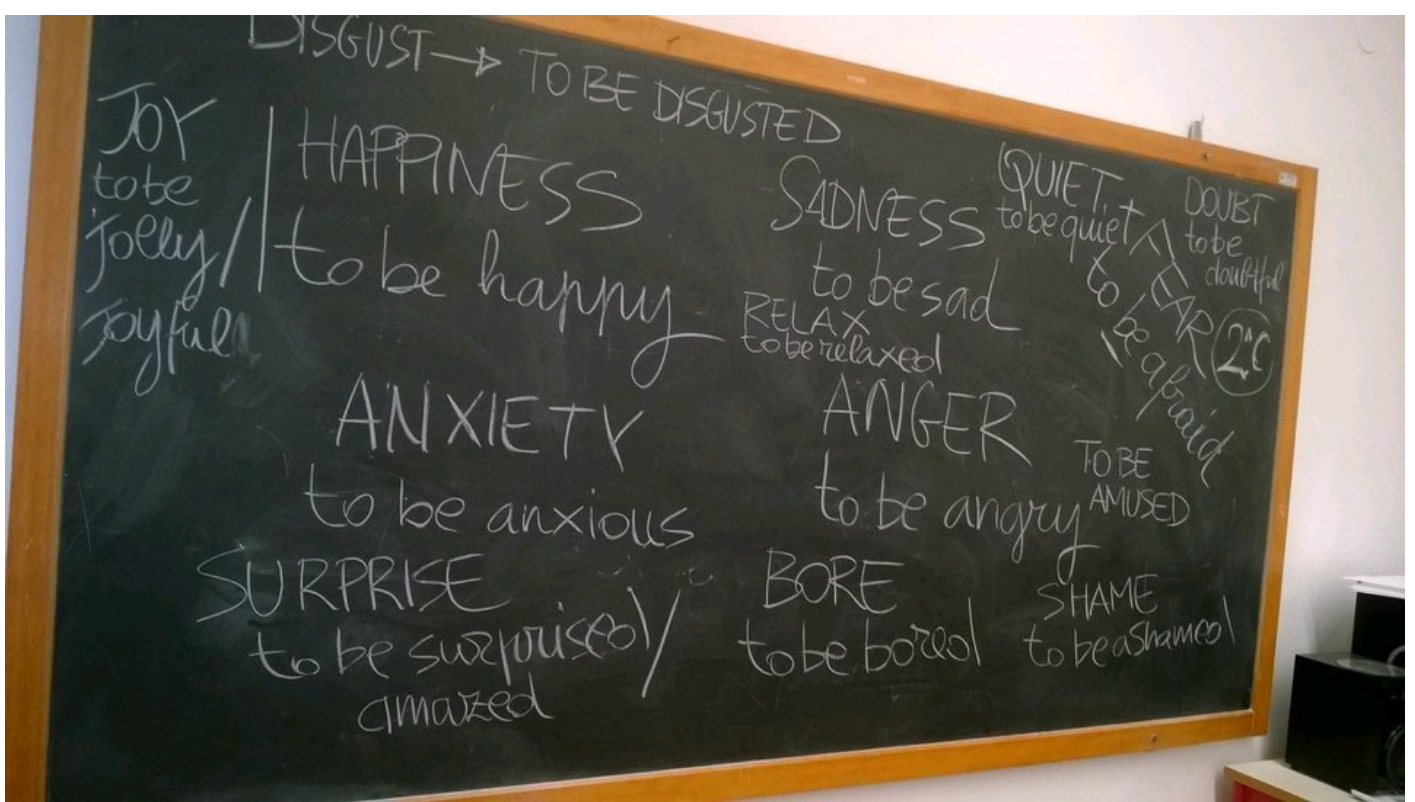 DISGUST → TO BE DISGUSTED
JOY
to be
jolly/
joyful
HAPPINESS
to be happy
SADNESS
to be sad
RELAX
to be relaxed
QUIET
to be quiet
FEAR
to be afraid
DOUBT
to be
doubtful
2°C
ANXIETY
to be anxious
ANGER
to be angry
TO BE
AMUSED
SURPRISE
to be surprised/
amazed
BORE
to be bored
SHAME
to be ashamed